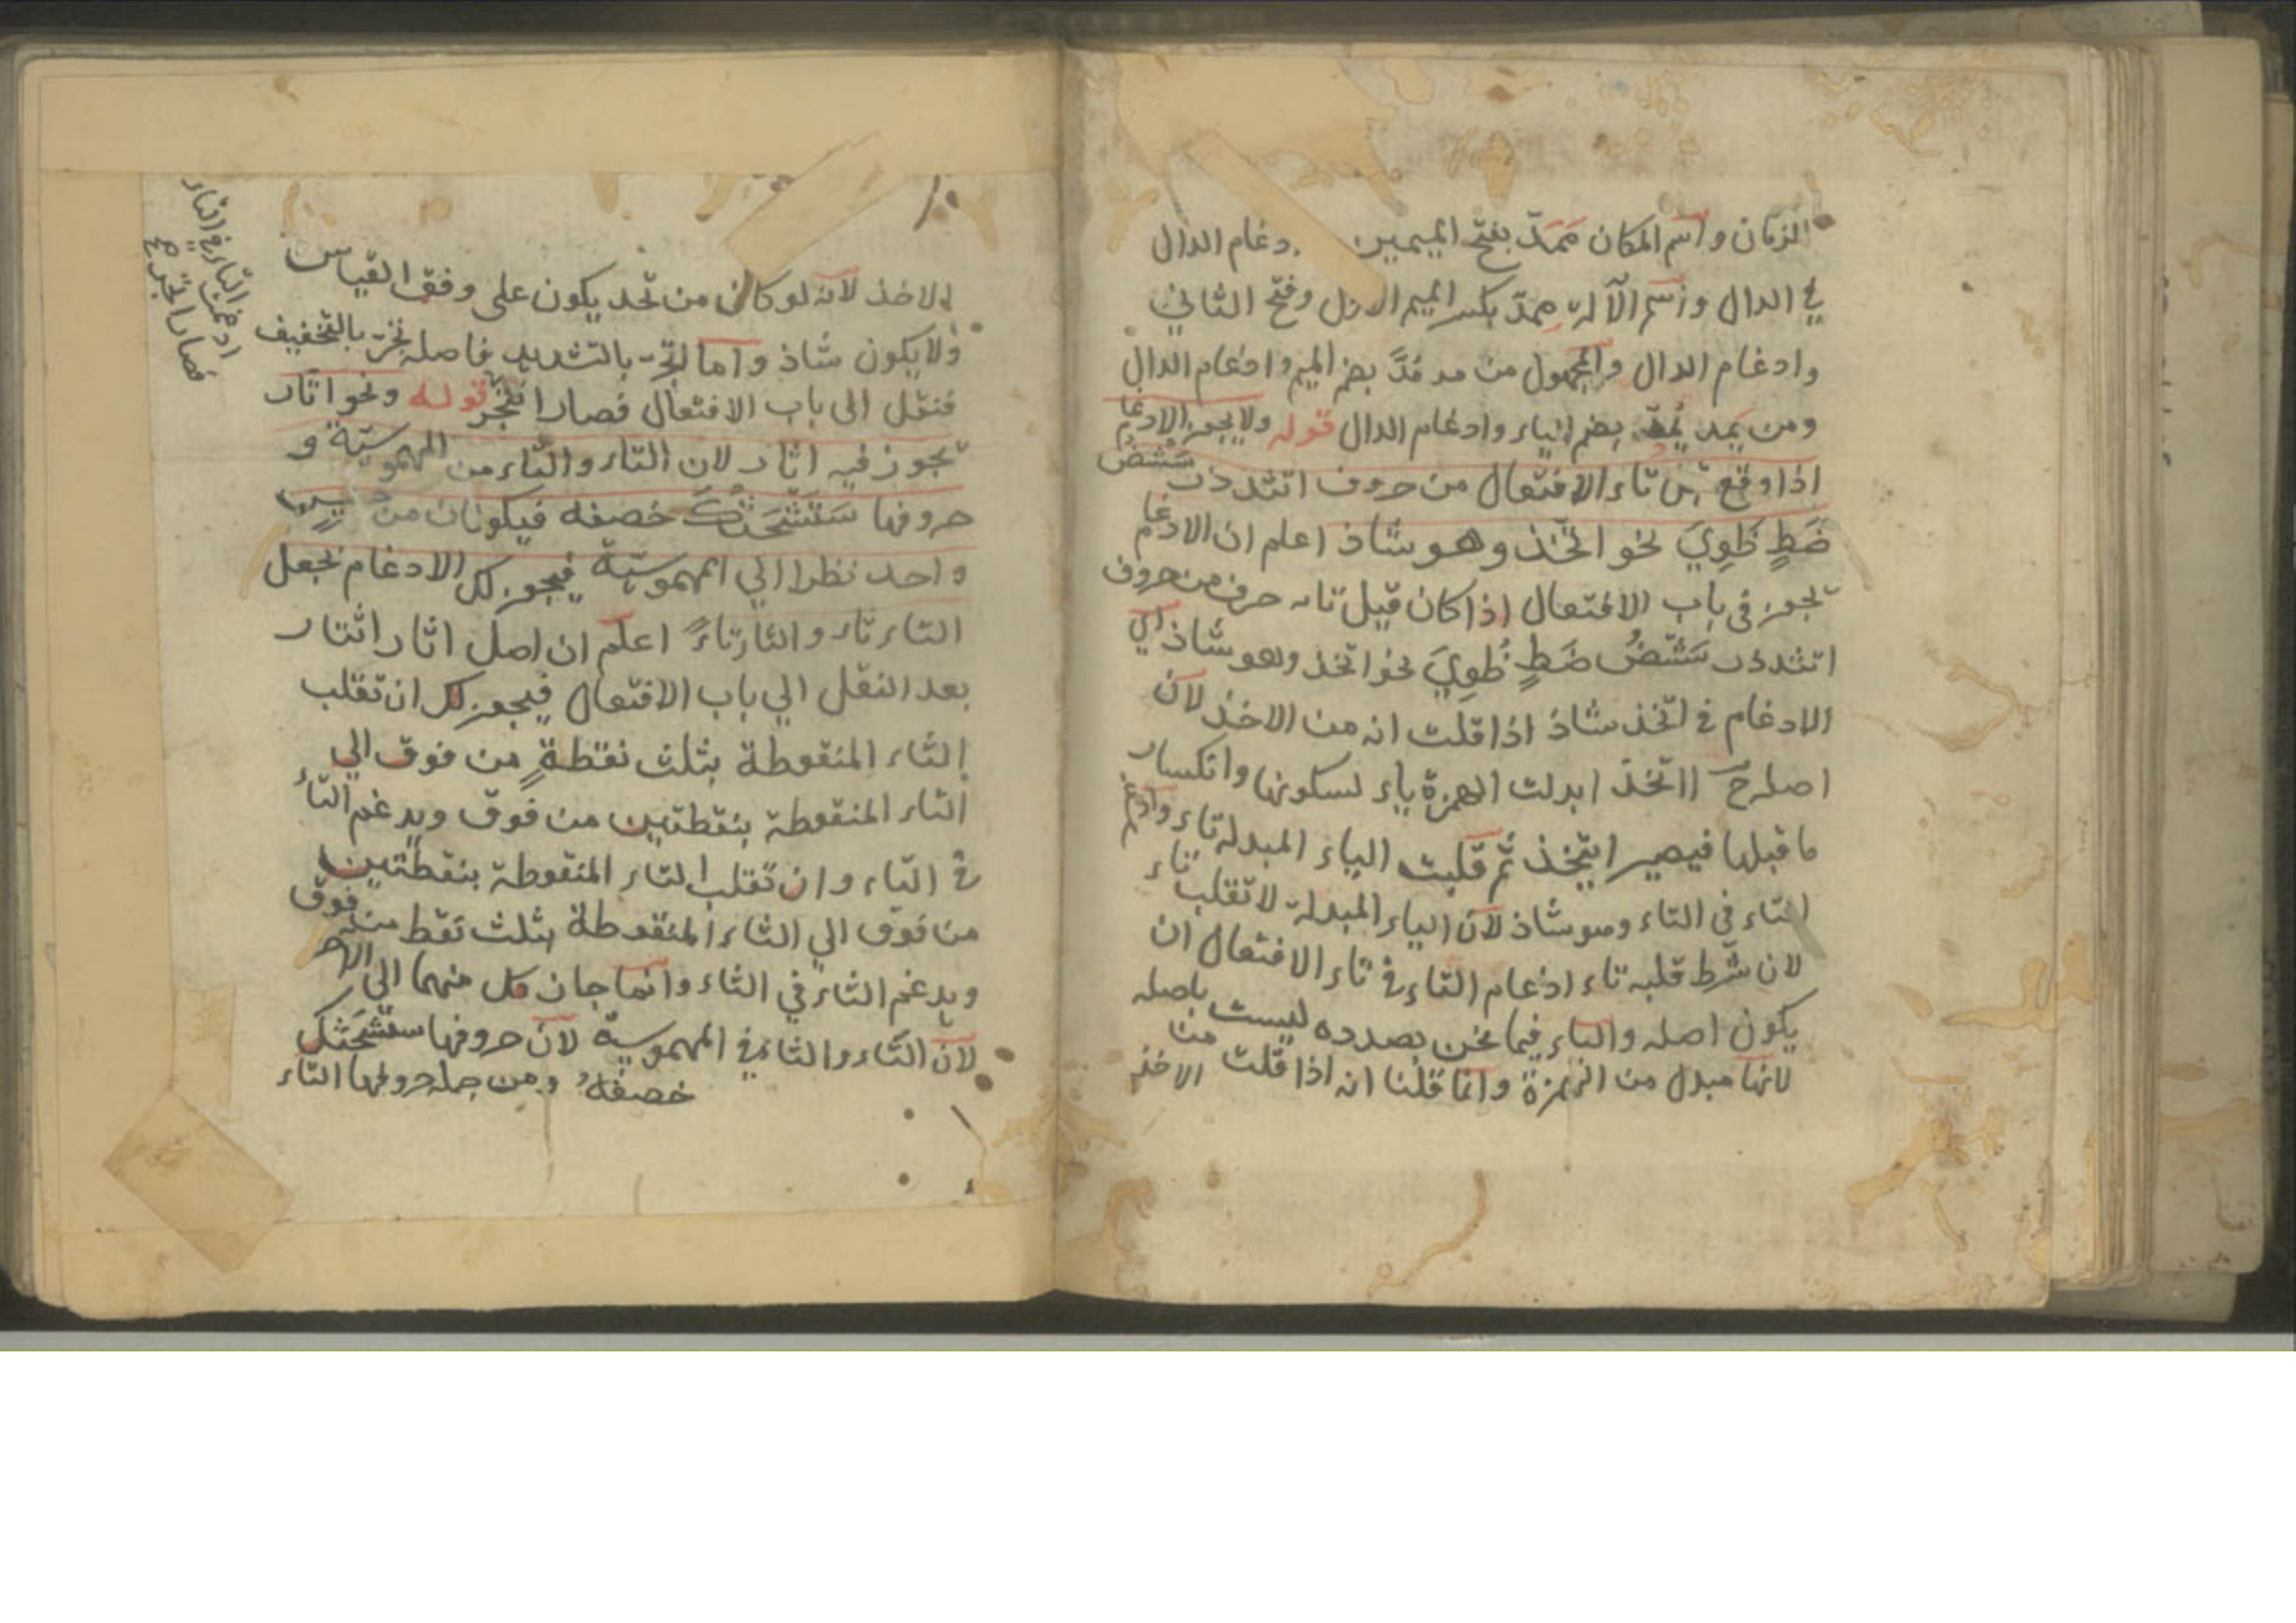 الزمان واسم المكان ممَدّ بفتح الميمين دغام الدال
في الدال واسم الآلة ممدّ بكسر الميم الاول وفتح الثاني
وادغام الدال والمجهول من مد مُدَّ بضم الميم وادغام الدال
ومن يمد يُمدّ بضم الياء وادغام الدال قوله ولا يجوز الادغام
اذا وقع تاء الافتعال من حروف اتثدذز سَشصض
ضَطٍ ظَوِيَ نحو اتّخذ وهو شاذ اعلم ان الادغام
يجوز في باب الافتعال اذا كان قبل تائه حرف من حروف
اتثدذز سَشصضُ ضَطٍ ظُوِيَ نحو اتخذ وهو شاذ اي
الادغام في اتّخذ شاذ اذا قلت انه من الاخذ لان
اصله ااتخذ ابدلت الهمزة ياء لسكونها وانكسار
ما قبلها فيصير ايتخذ ثم قلبت الياء المبدلة تاء وادغم
التاء في التاء وهو شاذ لان الياء المبدلة لا تقلب تاء
لان شرط قلبه تاء ادغام التاء في تاء الافتعال ان
يكون اصله والياء فيما نحن بصدده ليست باصله
لانها مبدل من الهمزة وانما قلنا انه اذا قلت من الاخذ
لان الاخذ لانه لو كان من تخذ يكون على وفق القياس
ولا يكون شاذ واما اتّجر بالتشديد فاصله تجر بالتخفيف
فنقل الى باب الافتعال فصار اتتجر قوله ونحو اتار
يجوز فيه اثار لان التاء والثاء من المهموسية و
حروفها سَتَشْحَثُكَ خصفه فيكونان من جنس
واحد نظرا الي المهموسية فيجوز لك الادغام بجعل
التاء ثاء والثاء تاءً اعلم ان اصل اثار اثتار
بعد النقل الي باب الافتعال فيجوز لك ان تقلب
الثاء المنقوطة بثلث نقطةٍ من فوق الي
التاء المنقوطة بنقطتين من فوق ويدغم التاء
في التاء وان تقلب التاء المنقوطة بنقطتين
من فوق الي الثاء المنقوطة بثلث نقط من فوق
ويدغم الثاء في الثاء وانما جاز قلب كل منهما الى الآخر
لان التاء والثاء في المهموسية لان حروفها ستشحثك
خصفهُ ومن جملة حروفها التاء
ادغمت التاء في التاء
فصار اتجر